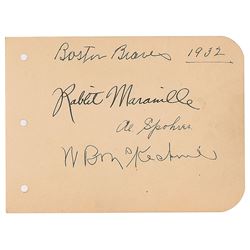 Boston Braves 1932
Rabbit Maranville
Al Spohrer
W B McKechnie